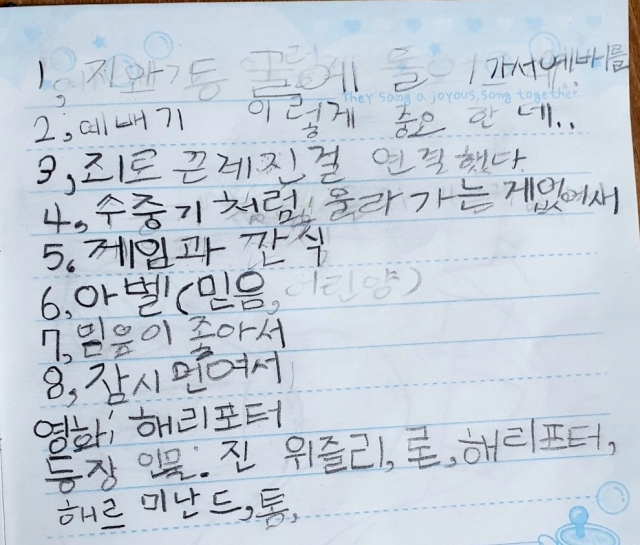 1, 진화기둥 굴 에 들어가서예배를
They Sang a joyous song together.
2, 예배기 이렇게 중요 한 데..
3, 죄로 끈레진걸 연결했다
4, 수중기 처럼 올라 가는 게없여새
5. 제임과 깐식
6, 아벨(믿음, 어린양)
7, 믿음이 좋아서
8, 잠시 먼여서
영화; 해리포터
등장 인물. 진 위즐리, 론, 해리포터,
해르 미난드, 통,